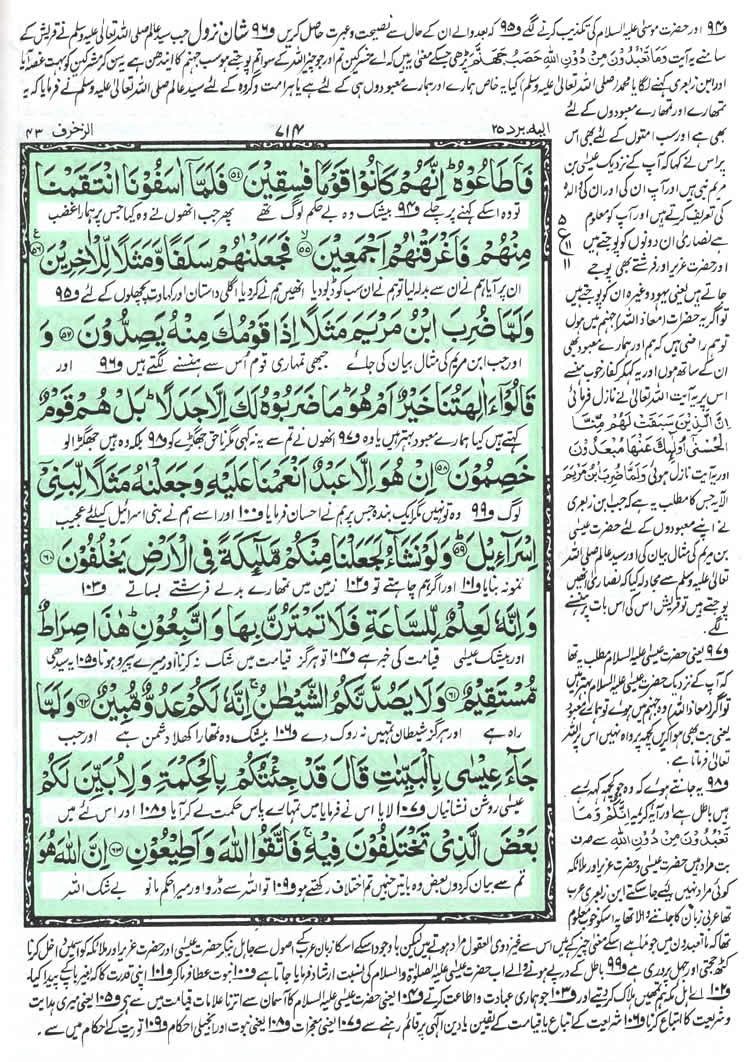 و۹۴ اور حضرت موسیٰ علیہ السلام کی تکذیب کرنے لگے و۹۵ کہ بعد والے ان کے حال سے نصیحت و عبرت حاصل کریں و۹۶ شان نزول جب سید عالم صلی اللہ تعالیٰ علیہ وسلم نے قریش کے
سامنے یہ آیت وَمَا تَعْبُدُونَ مِنْ دُونِ اللهِ حَصَبُ جَهَنَّمَ پڑھی جسکے معنیٰ یہ ہیں کہ اے مشرکین تم اور جو چیز اللہ کے سوا تم پوجتے ہو سب جہنم کا ایندھن ہے یہ سن کر مشرکین کو بہت غصہ آیا
اور ابن زبعری کہنے لگا یا محمد (صلی اللہ تعالیٰ علیہ وسلم) کیا یہ خاص ہمارے اور ہمارے معبودوں ہی کے لئے ہے یا ہر امت و گروہ کے لئے سید عالم صلی اللہ تعالیٰ علیہ وسلم نے فرمایا کہ یہ
تمھارے اور تمھارے معبودوں کے لئے
الیہ یرد ۲۵
۷۱۴
الزخرف ۴۳
بھی ہے اور سب امتوں کے لئے بھی اس
پر اس نے کہا کہ آپ کے نزدیک عیسیٰ بن
مریم نبی ہیں اور آپ ان کی اور ان کی والدہ
کی تعریف کرتے ہیں اور آپ کو معلوم
ہے نصاریٰ ان دونوں کو پوجتے ہیں
اور حضرت عزیر اور فرشتے بھی پوجے
جاتے ہیں یعنی یہود وغیرہ ان کو پوجتے ہیں
تو اگر یہ حضرات (معاذ اللہ) جہنم میں ہوں
تو ہم راضی ہیں کہ ہم اور ہمارے معبود بھی
ان کے ساتھ ہوں اور یہ کہہ کر کفار خوب ہنسے
اس پر یہ آیت اللہ تعالیٰ نے نازل فرمائی
اِنَّ الَّذِيْنَ سَبَقَتْ لَهُمْ مِّنَّا
الْحُسْنٰٓى اُولٰٓئِكَ عَنْهَا مُبْعَدُوْنَ
اور یہ آیت نازل ہوئی وَلَمَّا ضُرِبَ ابْنُ مَرْيَمَ
الآیہ جس کا مطلب یہ ہے کہ جب ابن زبعری
نے اپنے معبودوں کے لئے حضرت عیسیٰ
بن مریم کی مثال بیان کی اور سید عالم صلی اللہ
تعالیٰ علیہ وسلم سے مجادلہ کیا کہ نصاریٰ انھیں
پوجتے ہیں تو قریش اس کی اس بات پر ہنسنے
لگے۔
و۹۷ یعنی حضرت عیسیٰ علیہ السلام مطلب یہ تھا
کہ آپ کے نزدیک حضرت عیسیٰ علیہ السلام بہتر ہیں
تو اگر (معاذ اللہ) وہ جہنم میں ہوئے تو ہمارے معبود
یعنی بت بھی ہوا کریں کچھ پرواہ نہیں اس پر اللہ
تعالیٰ فرماتا ہے۔
و۹۸ یہ جانتے ہوئے کہ وہ جو کچھ کہہ رہے
ہیں باطل ہے اور آیۂ کریمہ اِنَّكُمْ وَمَا
تَعْبُدُوْنَ مِنْ دُوْنِ اللهِ سے صرف
بت مراد ہیں حضرت عیسیٰ و حضرت عزیر اور ملائکہ
کوئی مراد نہیں لیے جا سکتے ابن زبعری عرب
تھا عربی زبان کا جاننے والا تھا یہ اسکو خوب معلوم
فَاَطَاعُوْهُ ؕ اِنَّهُمْ كَانُوْا قَوْمًا فٰسِقِيْنَ ﴿۵۴﴾ فَلَمَّاۤ اٰسَفُوْنَا انْتَقَمْنَا
تو وہ اسکے کہنے پر چلے و۹۴ بیشک وہ بے حکم لوگ تھے پھر جب انھوں نے وہ کیا جس پر ہمارا غضب
مِنْهُمْ فَاَغْرَقْنٰهُمْ اَجْمَعِيْنَ ﴿۵۵﴾ فَجَعَلْنٰهُمْ سَلَفًا وَّمَثَلًا لِّلْاٰخِرِيْنَ ﴿۵۶﴾
ان پر آیا ہم نے ان سے بدلہ لیا تو ہم نے ان سب کو ڈبو دیا انھیں ہم نے کر دیا اگلی داستان اور کہاوت پچھلوں کے لئے و۹۵
وَلَمَّا ضُرِبَ ابْنُ مَرْيَمَ مَثَلًا اِذَا قَوْمُكَ مِنْهُ يَصِدُّوْنَ ﴿۵۷﴾ وَ
اور جب ابن مریم کی مثال بیان کی جائے جبھی تمہاری قوم اُس سے ہنسنے لگتے ہیں و۹۶ اور
قَالُوْۤا ءَاٰلِهَتُنَا خَيْرٌ اَمْ هُوَ ؕ مَا ضَرَبُوْهُ لَكَ اِلَّا جَدَلًا ؕ بَلْ هُمْ قَوْمٌ
کہتے ہیں کیا ہمارے معبود بہتر ہیں یا وہ و۹۷ انھوں نے تم سے یہ نہ کہی مگر ناحق جھگڑے کو و۹۸ بلکہ وہ ہیں جھگڑالو
خَصِمُوْنَ ﴿۵۸﴾ اِنْ هُوَ اِلَّا عَبْدٌ اَنْعَمْنَا عَلَيْهِ وَجَعَلْنٰهُ مَثَلًا لِّبَنِيْۤ
لوگ و۹۹ وہ تو نہیں مگر ایک بندہ جس پر ہم نے احسان فرمایا و۱۰۰ اور اسے ہم نے بنی اسرائیل کیلئے عجیب
اِسْرَآءِيْلَ ﴿۵۹﴾ وَلَوْ نَشَآءُ لَجَعَلْنَا مِنْكُمْ مَّلٰٓئِكَةً فِي الْاَرْضِ يَخْلُفُوْنَ ﴿۶۰﴾
نمونہ بنایا و۱۰۱ اور اگر ہم چاہتے تو و۱۰۲ زمین میں تمھارے بدلے فرشتے بساتے و۱۰۳
وَاِنَّهٗ لَعِلْمٌ لِّلسَّاعَةِ فَلَا تَمْتَرُنَّ بِهَا وَاتَّبِعُوْنِ ؕ هٰذَا صِرَاطٌ
اور بیشک عیسیٰ قیامت کی خبر ہے و۱۰۴ تو ہرگز قیامت میں شک نہ کرنا اور میرے پیرو ہونا و۱۰۵ یہ سیدھی
مُّسْتَقِيْمٌ ﴿۶۱﴾ وَلَا يَصُدَّنَّكُمُ الشَّيْطٰنُ ۚ اِنَّهٗ لَكُمْ عَدُوٌّ مُّبِيْنٌ ﴿۶۲﴾ وَلَمَّا
راہ ہے اور ہرگز شیطان تمہیں نہ روک دے و۱۰۶ بیشک وہ تمھارا کھلا دشمن ہے اور جب
جَآءَ عِيْسٰى بِالْبَيِّنٰتِ قَالَ قَدْ جِئْتُكُمْ بِالْحِكْمَةِ وَلِاُبَيِّنَ لَكُمْ
عیسیٰ روشن نشانیاں و۱۰۷ لایا اس نے فرمایا میں تمہارے پاس حکمت لے کر آیا و۱۰۸ اور اس لئے میں
بَعْضَ الَّذِيْ تَخْتَلِفُوْنَ فِيْهِ ۚ فَاتَّقُوا اللهَ وَاَطِيْعُوْنِ ﴿۶۳﴾ اِنَّ اللهَ هُوَ
تم سے بیان کر دوں بعض وہ باتیں جن میں تم اختلاف رکھتے ہو و۱۰۹ تو اللہ سے ڈرو اور میرا حکم مانو بے شک اللہ
۵
ع
۱۱
۱۱
تھا کہ ما تعبدون میں جو ما ہے اسکے معنی چیز کے ہیں اس سے غیر ذوی العقول مراد ہوتے ہیں لیکن باوجود اسکے اسکا زبان عرب کے اصول سے جاہل بن کر حضرت عیسیٰ اور حضرت عزیر اور ملائکہ کو اسمیں داخل کرنا
کٹھ حجتی اور جہل پروری ہے و۹۹ باطل کے درپے ہونے والے اب حضرت عیسیٰ علیہ الصلوٰۃ والسلام کی نسبت ارشاد فرمایا جاتا ہے و۱۰۰ نبوت عطا فرما کر و۱۰۱ اپنی قدرت کا کہ بغیر باپ کے پیدا کیا۔
و۱۰۲ اے اہل مکہ ہم تمھیں ہلاک کر دیتے اور و۱۰۳ جو ہماری عبادت و اطاعت کرتے و۱۰۴ یعنی حضرت عیسیٰ علیہ السلام کا آسمان سے اترنا علامات قیامت میں سے ہے و۱۰۵ یعنی میری ہدایت
و شریعت کا اتباع کرنا و۱۰۶ شریعت کے اتباع یا قیامت کے یقین یا دین الٰہی پر قائم رہنے سے و۱۰۷ یعنی معجزات و۱۰۸ یعنی نبوت اور انجیلی احکام و۱۰۹ توریت کے احکام میں سے۔